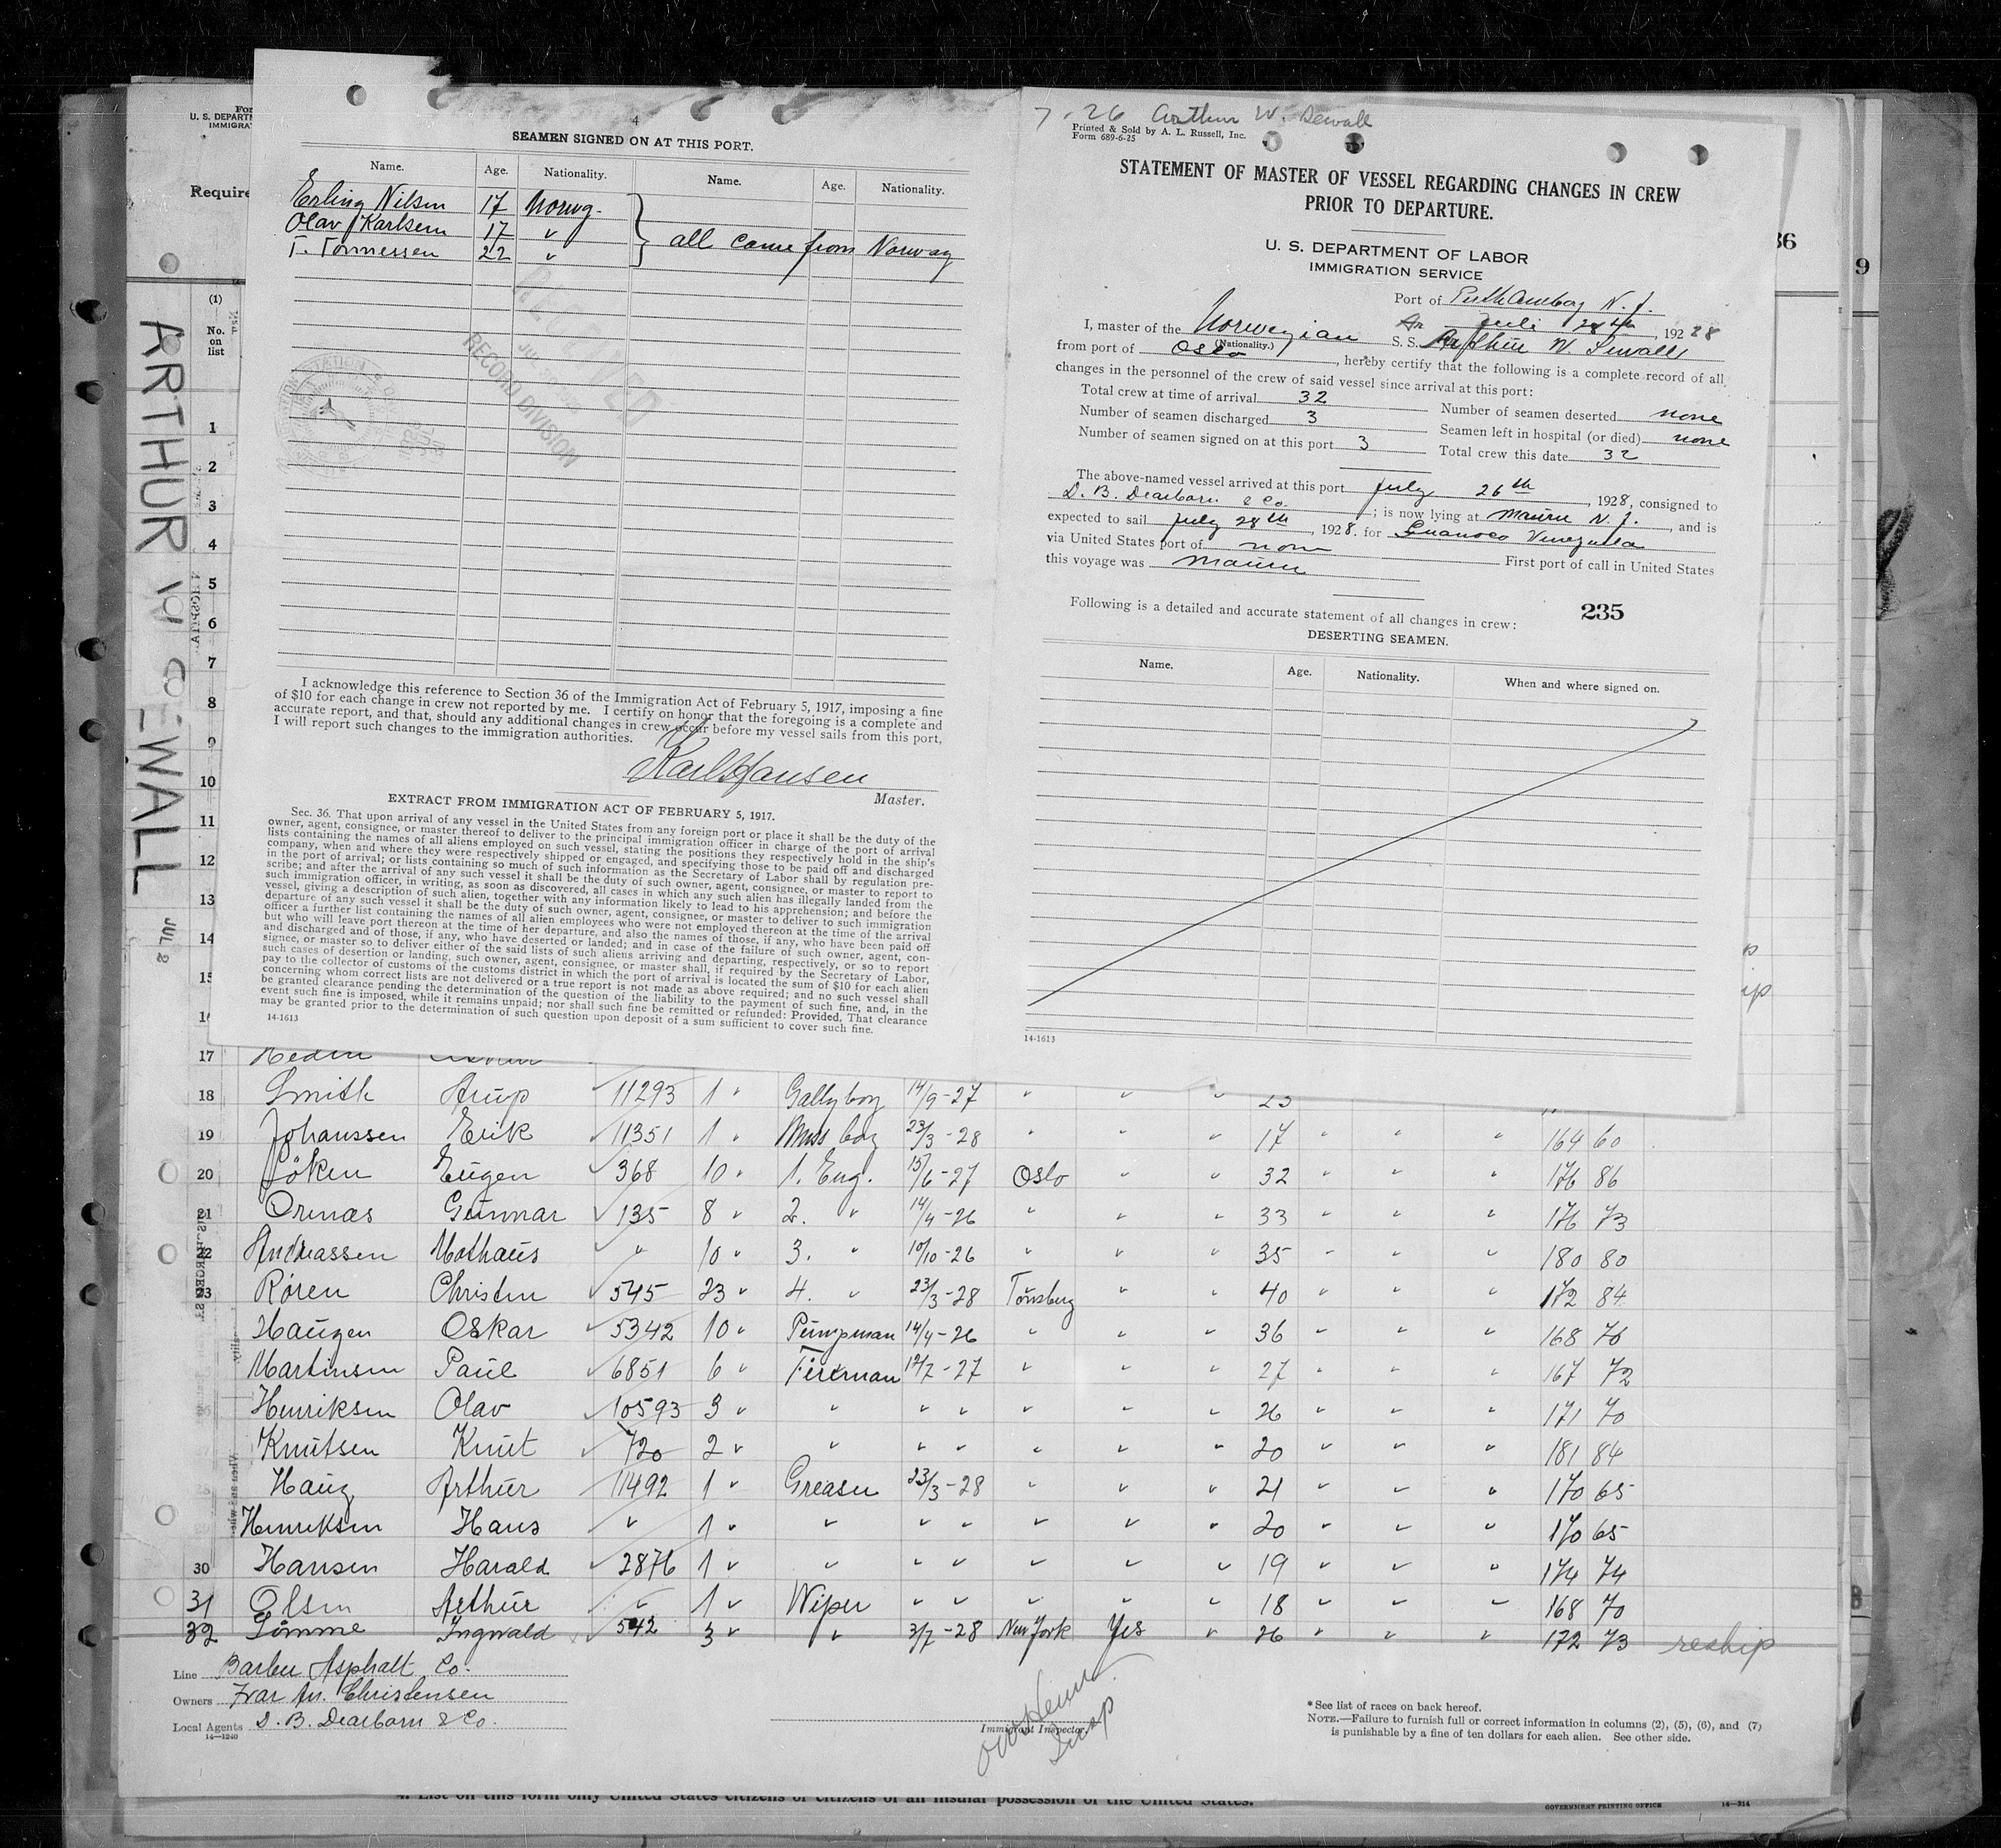 7-26 Arthur W. Sewall
Printed & Sold by A. L. Russell, Inc.
Form 689-6-25
U. S. DEPARTM
IMMIGRAT
Require
ARTHUR W SEWALL
JUL 2
(1)
No.
on
list
4
SEAMEN SIGNED ON AT THIS PORT.
Name. Age. Nationality. Name. Age. Nationality.
Erling Nilsen 17 Norwg.
Olav Karlsen 17 "
T. Tonnessen 22 "
all came from Norway
RECEIVED
RECORD DIVISION
I acknowledge this reference to Section 36 of the Immigration Act of February 5, 1917, imposing a fine
of $10 for each change in crew not reported by me. I certify on honor that the foregoing is a complete and
accurate report, and that, should any additional changes in crew occur before my vessel sails from this port,
I will report such changes to the immigration authorities.
Karl Hansen
Master.
EXTRACT FROM IMMIGRATION ACT OF FEBRUARY 5, 1917.
Sec. 36. That upon arrival of any vessel in the United States from any foreign port or place it shall be the duty of the
owner, agent, consignee, or master thereof to deliver to the principal immigration officer in charge of the port of arrival
lists containing the names of all aliens employed on such vessel, stating the positions they respectively hold in the ship's
company, when and where they were respectively shipped or engaged, and specifying those to be paid off and discharged
in the port of arrival; or lists containing so much of such information as the Secretary of Labor shall by regulation pre-
scribe; and after the arrival of any such vessel it shall be the duty of such owner, agent, consignee, or master to report to
such immigration officer, in writing, as soon as discovered, all cases in which any such alien has illegally landed from the
vessel, giving a description of such alien, together with any information likely to lead to his apprehension; and before the
departure of any such vessel it shall be the duty of such owner, agent, consignee, or master to deliver to such immigration
officer a further list containing the names of all alien employees who were not employed thereon at the time of the arrival
but who will leave port thereon at the time of her departure, and also the names of those, if any, who have been paid off
and discharged and of those, if any, who have deserted or landed; and in case of the failure of such owner, agent, con-
signee, or master so to deliver either of the said lists of such aliens arriving and departing, respectively, or so to report
such cases of desertion or landing, such owner, agent, consignee, or master shall, if required by the Secretary of Labor,
pay to the collector of customs of the customs district in which the port of arrival is located the sum of $10 for each alien
concerning whom correct lists are not delivered or a true report is not made as above required; and no such vessel shall
be granted clearance pending the determination of the question of the liability to the payment of such fine, and, in the
event such fine is imposed, while it remains unpaid; nor shall such fine be remitted or refunded: Provided, That clearance
may be granted prior to the determination of such question upon deposit of a sum sufficient to cover such fine.
14-1613
STATEMENT OF MASTER OF VESSEL REGARDING CHANGES IN CREW
PRIOR TO DEPARTURE.
U. S. DEPARTMENT OF LABOR
IMMIGRATION SERVICE
Port of Perth Amboy N. J.
Juli 28th, 1928
I, master of the Norwegian S. S. Arthur W. Sewall
(Nationality.)
from port of Oslo, hereby certify that the following is a complete record of all
changes in the personnel of the crew of said vessel since arrival at this port:
Total crew at time of arrival 32 Number of seamen deserted none
Number of seamen discharged 3 Seamen left in hospital (or died) none
Number of seamen signed on at this port 3 Total crew this date 32
The above-named vessel arrived at this port July 26th, 1928, consigned to
D. B. Dearborn & Co.; is now lying at Maurer N. J., and is
expected to sail July 28th, 1928. for Guanoco Venezuela
via United States port of none First port of call in United States
this voyage was Maurer
Following is a detailed and accurate statement of all changes in crew:
235
DESERTING SEAMEN.
Name. Age. Nationality. When and where signed on.
14-1613
36
9
1
2
3
4
5
6
7
8
9
10
11
12
13
14
15
17
18 Smith Arup 11293 1 " Gallyboy 14/9-27 " " 23
19 Johanssen Erik 11351 1 " Mess boy 23/3-28 " " " 17 " " " 164 60
20 Jöken Eugen 368 10 " 1. Eng. 15/6-27 Oslo " " 32 " " " 176 86
21 Ormas Gunnar 135 8 " 2. " 14/4-26 " " " 33 " " " 176 73
22 Andreassen Mathaus " 10 " 3. " 10/10-26 " " " 35 " " " 180 80
23 Rören Christen 545 23 " 4. " 23/3-28 Tönsberg " " 40 " " " 172 84
Haugen Oskar 5342 10 " Pumpman 14/4-26 " " " 36 " " " 168 76
Martinsen Paul 6851 6 " Fireman 12/7-27 " " " 27 " " " 167 72
Henriksen Olav 10593 3 " " " " " " " 26 " " " 171 70
Knutsen Knut 720 2 " " " " " " " 20 " " " 181 84
Haug Arthur 11492 1 " Greaser 23/3-28 " " " 21 " " " 170 65
Henriksen Hans " 1 " " " " " " " 20 " " " 170 65
30 Hansen Harald 2876 1 " " " " " " " 19 " " " 174 74
31 Olsen Arthur " 1 " Wiper " " " " " 18 " " " 168 70
32 Sömme Ingwald 542 3 " " 3/7-28 New York Yes " 26 " " " 172 73 reship
Line Barber Asphalt Co.
Owners Ivar An. Christensen
Local Agents D. B. Dearborn & Co.
14-1240
Immigrant Inspector
Insp
* See list of races on back hereof.
NOTE.—Failure to furnish full or correct information in columns (2), (5), (6), and (7)
is punishable by a fine of ten dollars for each alien. See other side.
4. List on this form only United States citizens or citizens of an insular possession of the United States.
GOVERNMENT PRINTING OFFICE 14-314